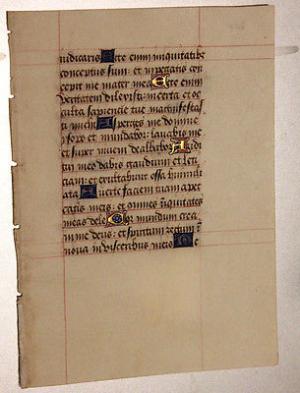 iudicaris Ecce enim iniquitatib
conceptus sum: et in peccatis con
cepit me mater mea Ecce enim
veritatem dilexisti: incerta et oc
culta sapiencie tue manifestas
ti michi Asperges me domine
ysopo et mundabor: lavabis me
et super nivem dealbabor Audi
tui meo dabis gaudium et leti
ciam: et exultabunt ossa humili
ata Averte faciem tuam a pec
catis meis: et omnes iniquitates
meas dele Cor mundum crea
in me deus: et spiritum rectum in
nova in visceribus meis Ne